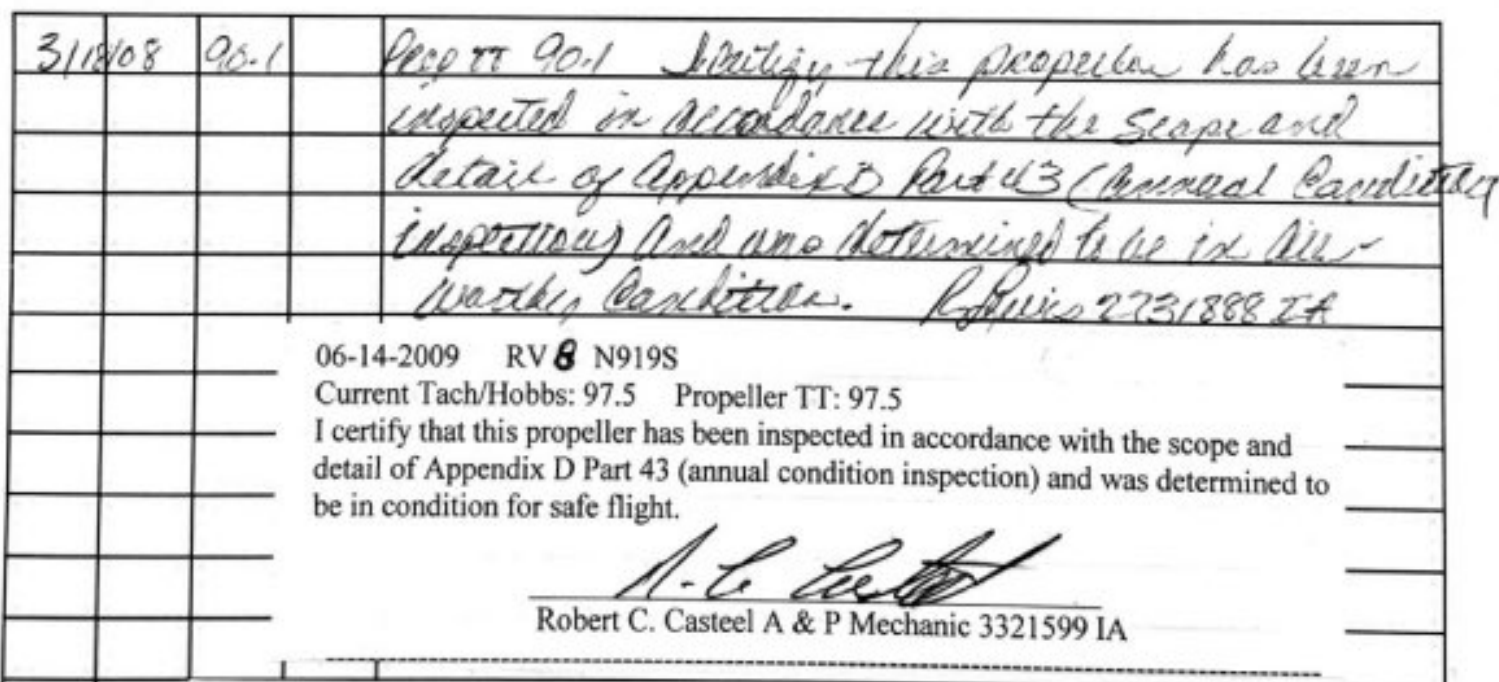 3/18/08 90.1 Prop TT 90.1 I certify this propeller has been
inspected in accordance with the scope and
detail of Appendix D Part 43 (annual condition
inspection) and was determined to be in air-
worthy condition. 2731888 IA
06-14-2009 RV 8 N919S
Current Tach/Hobbs: 97.5 Propeller TT: 97.5
I certify that this propeller has been inspected in accordance with the scope and
detail of Appendix D Part 43 (annual condition inspection) and was determined to
be in condition for safe flight.
Robert C. Casteel A & P Mechanic 3321599 IA